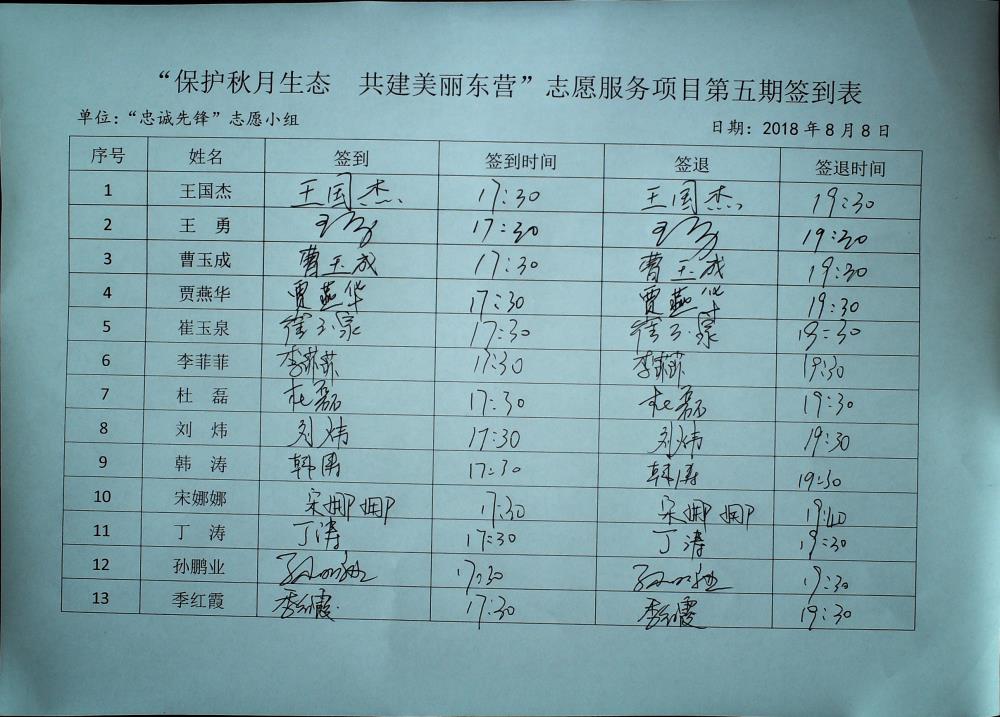 “保护秋月生态 共建美丽东营”志愿服务项目第五期签到表
单位：“忠诚先锋”志愿小组 日期：2018年8月8日
序号 姓名 签到 签到时间 签退 签退时间
1 王国杰 王国杰 17:30 王国杰 19:30
2 王 勇 王勇 17:30 王勇 19:30
3 曹玉成 曹玉成 17:30 曹玉成 19:30
4 贾燕华 贾燕华 17:30 贾燕华 19:30
5 崔玉泉 崔玉泉 17:30 崔玉泉 19:30
6 李菲菲 李菲菲 17:30 李菲菲 19:30
7 杜 磊 杜磊 17:30 杜磊 19:30
8 刘 炜 刘炜 17:30 刘炜 19:30
9 韩 涛 韩涛 17:30 韩涛 19:30
10 宋娜娜 宋娜娜 17:30 宋娜娜 19:40
11 丁 涛 丁涛 17:30 丁涛 19:30
12 孙鹏业 孙鹏业 17:30 孙鹏业 19:30
13 季红霞 季红霞 17:30 季红霞 19:30